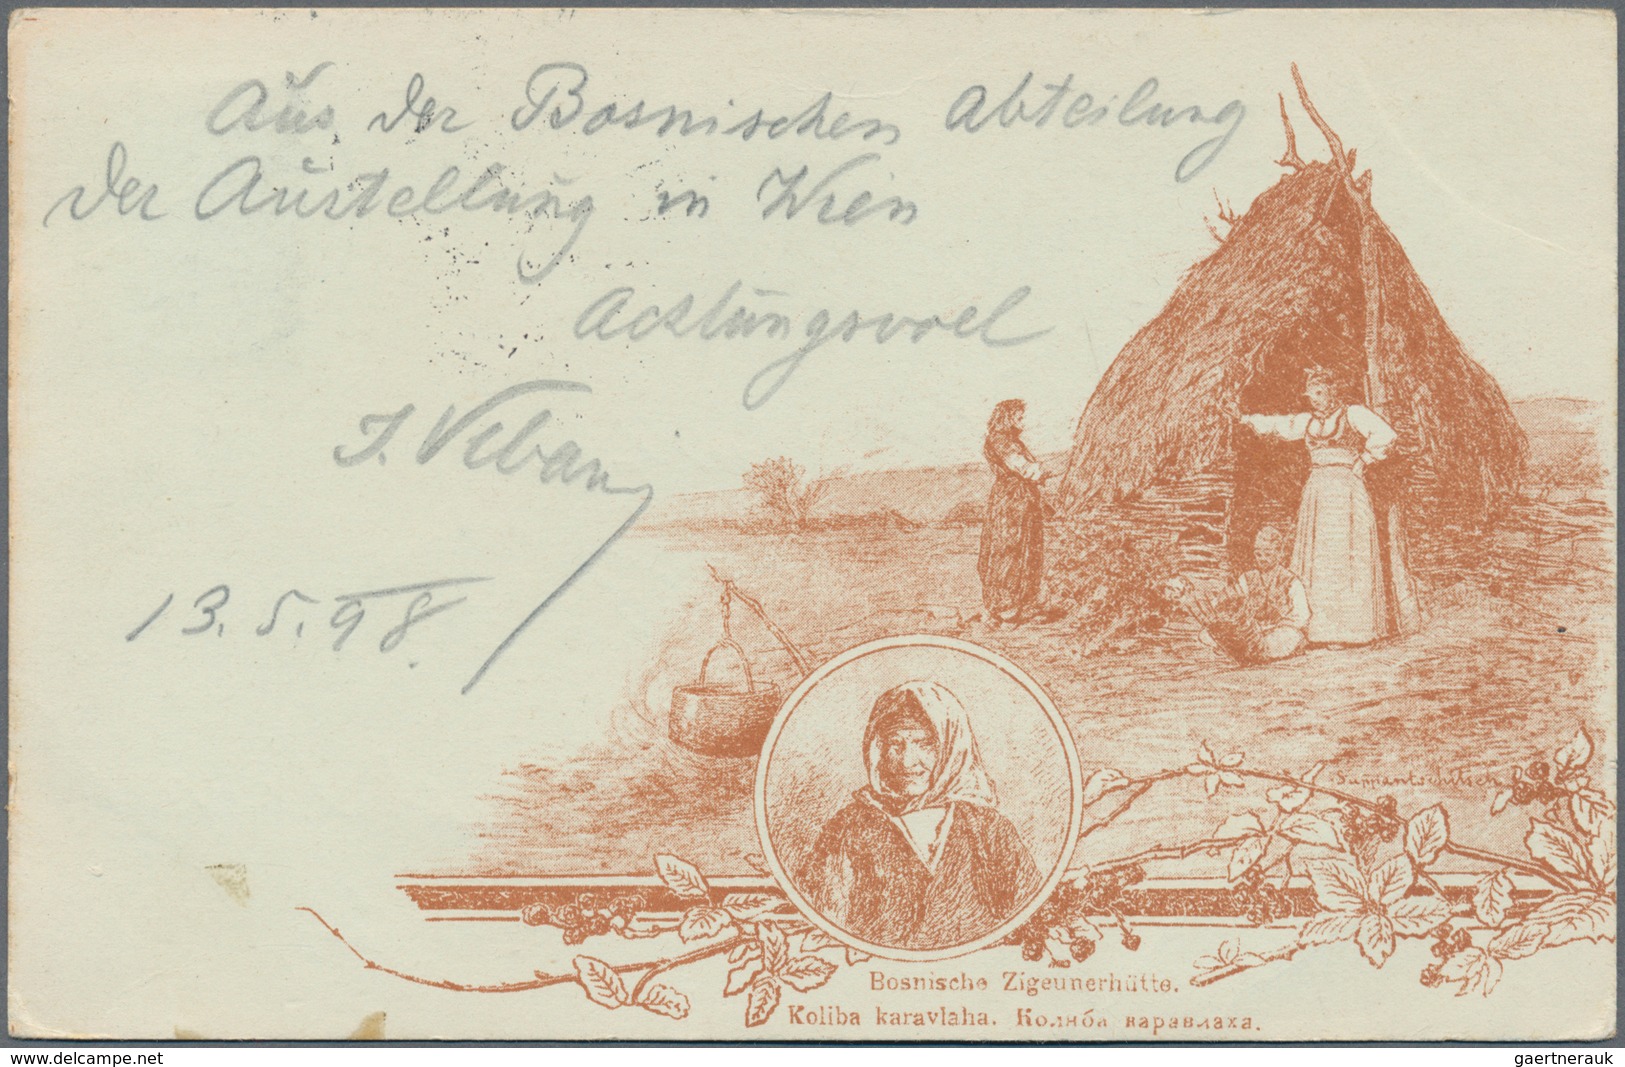 Aus der Bosnischen Abteilung
der Austellung in Wien
Achtungsvoll
J. Urban
13.5.98.
Suppantschitsch
Bosnische Zigeunerhütte.
Koliba karavlaha. Колиба каравлаха.
www.delcampe.net
gaertnerauk